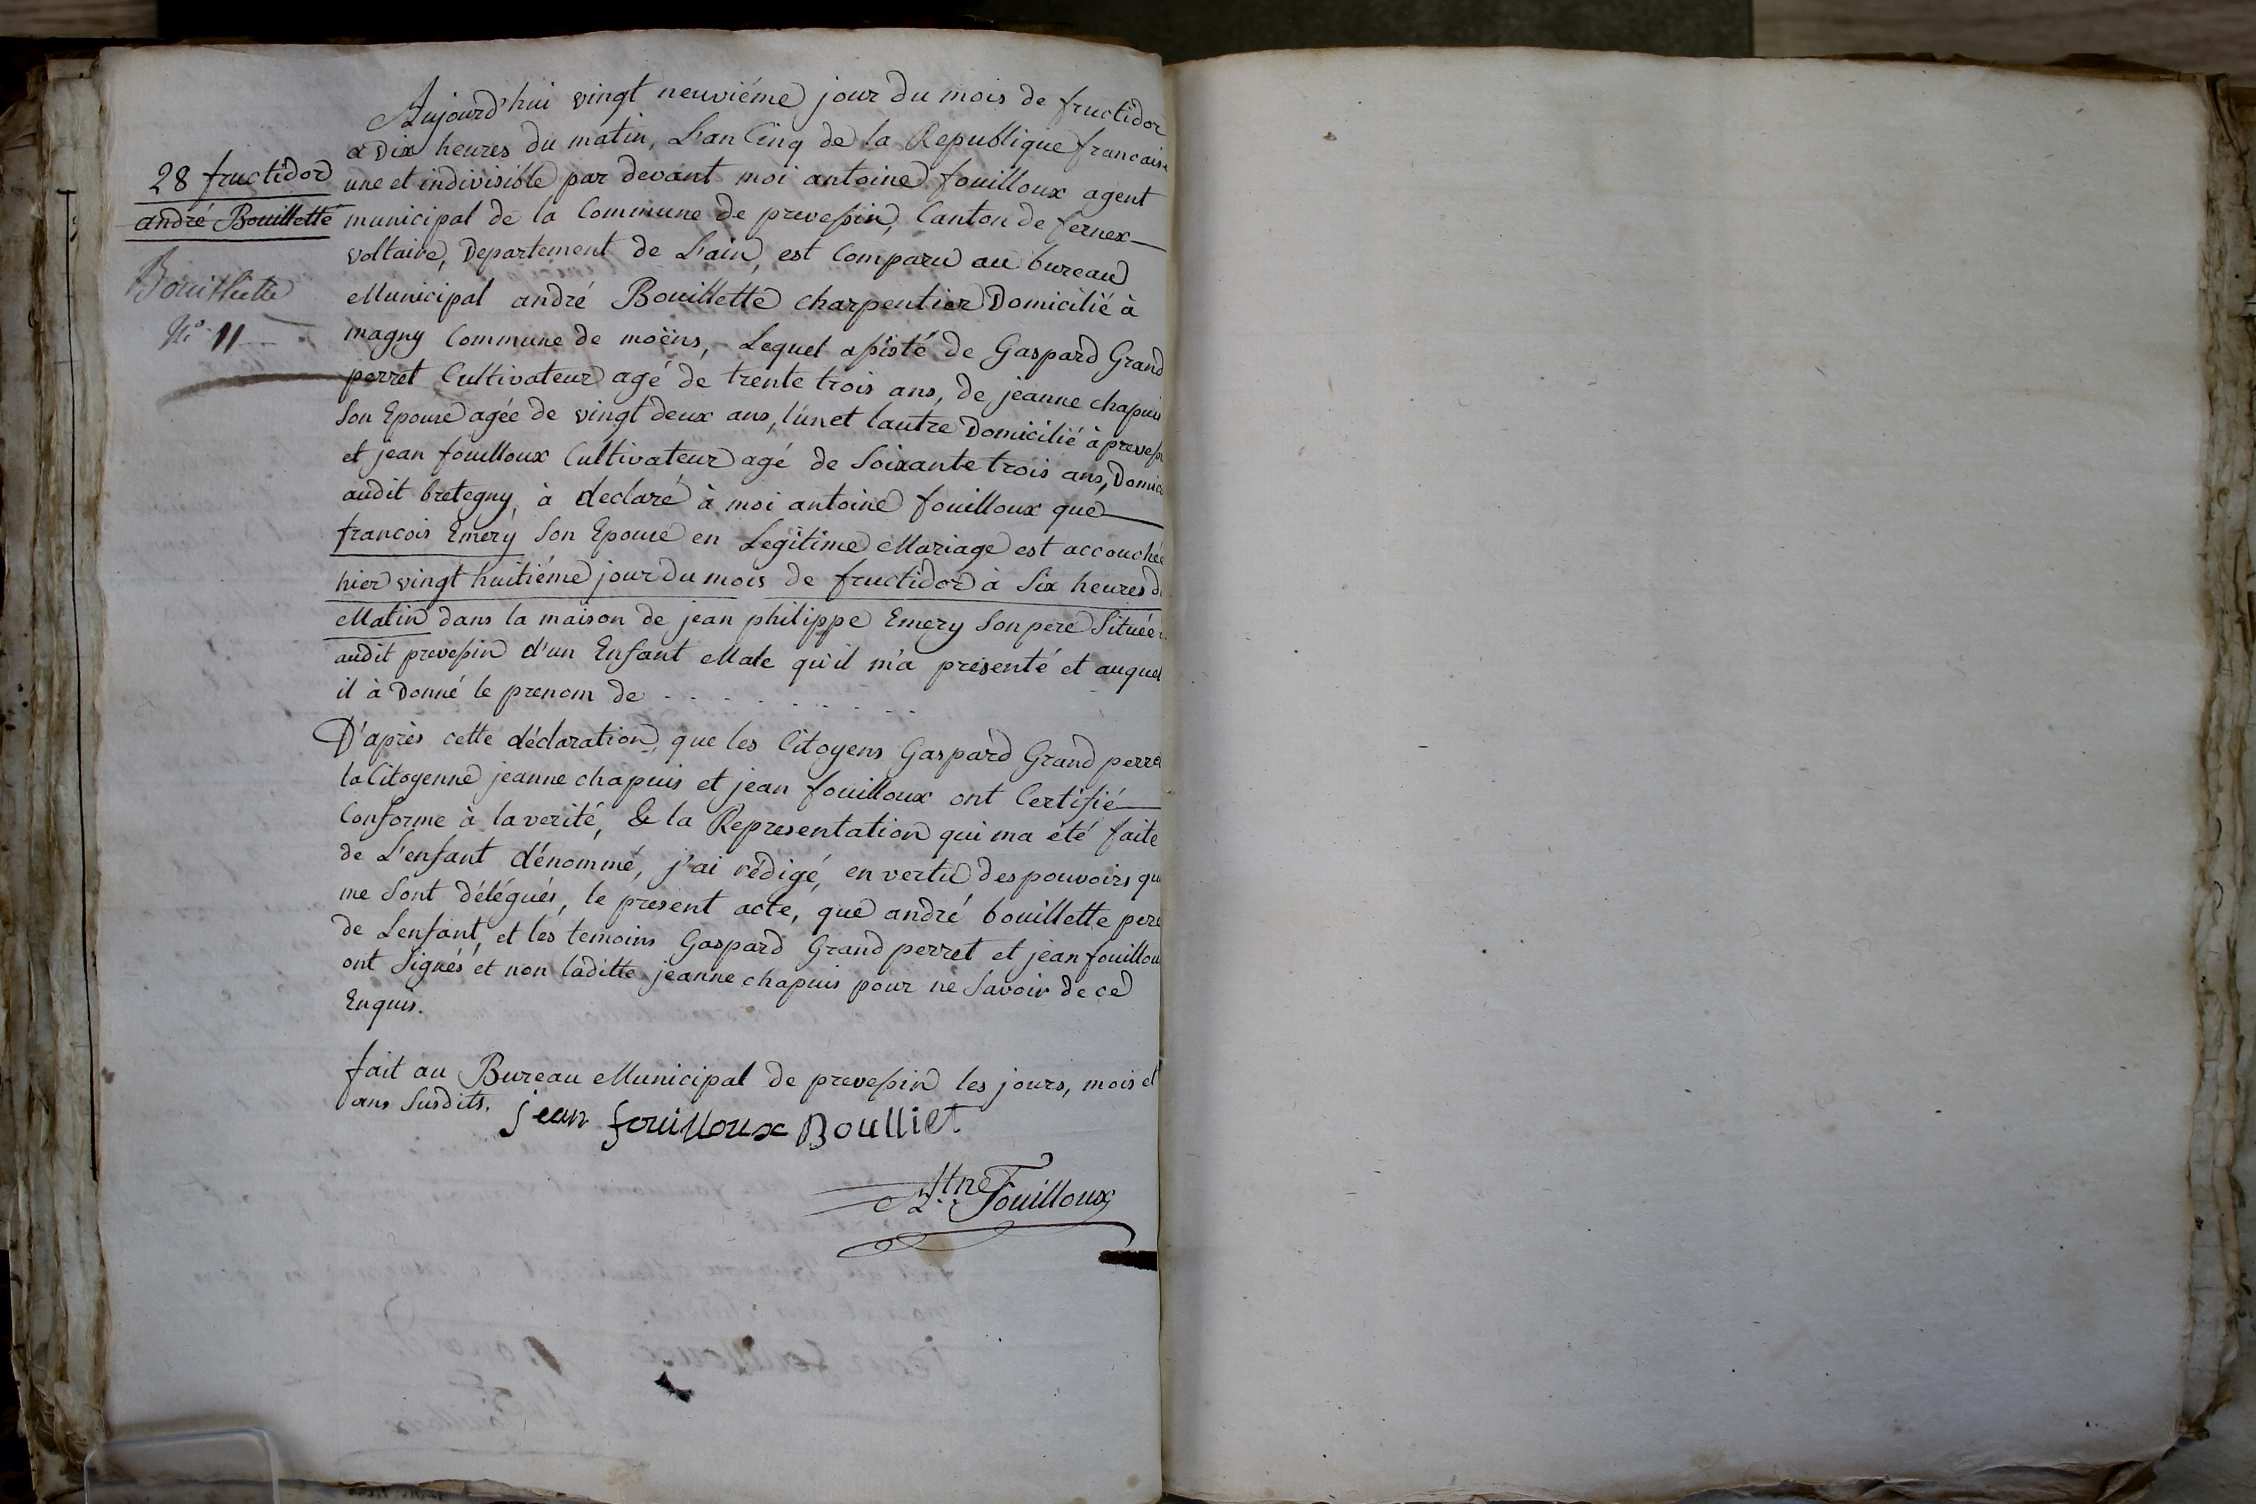 28 fructidor
andré Bouillette
Bouillette
N.º 11
Aujourd'hui vingt neuviéme jour du mois de fructidor
a Dix heures du matin, Lan Cinq de la Republique francaise
une et indivisible par devant moi antoine fouilloux agent
municipal de la Commune de prevessin, Canton de fernex
voltaire, Departement de Lain, est Comparu au bureau
Municipal andré Bouillette charpentier Domicilié à
magny Commune de moëns, Lequel assisté de Gaspard Grand
perret Cultivateur agé de trente trois ans, de jeanne chapuis
Son Epouse agée de vingt deux ans, l'un et lautre Domicilié à prevess
et jean fouilloux Cultivateur agé de Soixante trois ans, Domici
audit bretegny, à declaré à moi antoine fouilloux que
francois Emery Son Epouse en Legitime Mariage est accouchée
hier vingt huitiéme jour du mois de fructidor à Six heures d
Matin dans la maison de jean philippe Emery Son pere Située
audit prevessin d'un Enfant Male qu'il m'a presenté et auquel
il à Donné le prenom de . . . . . . . . .
D'après cette déclaration, que les Citoyens Gaspard Grand perre
la Citoyenne jeanne chapuis et jean fouilloux ont Certifié
Conforme à la verité, & la Representation qui ma été faite
de L'enfant dénommé, j'ai rédigé, en vertu des pouvoirs qu
me Sont délégués, le present acte, que andré bouillette pere
de Lenfant, et les temoins Gaspard Grand perret et jean fouillou
ont Signés et non laditte jeanne chapuis pour ne Savoir de ce
Enquis.
fait au Bureau Municipal de prevessin les jours, mois et
ans Susdits.
jean fouilloux Boulliet
Atne Fouilloux